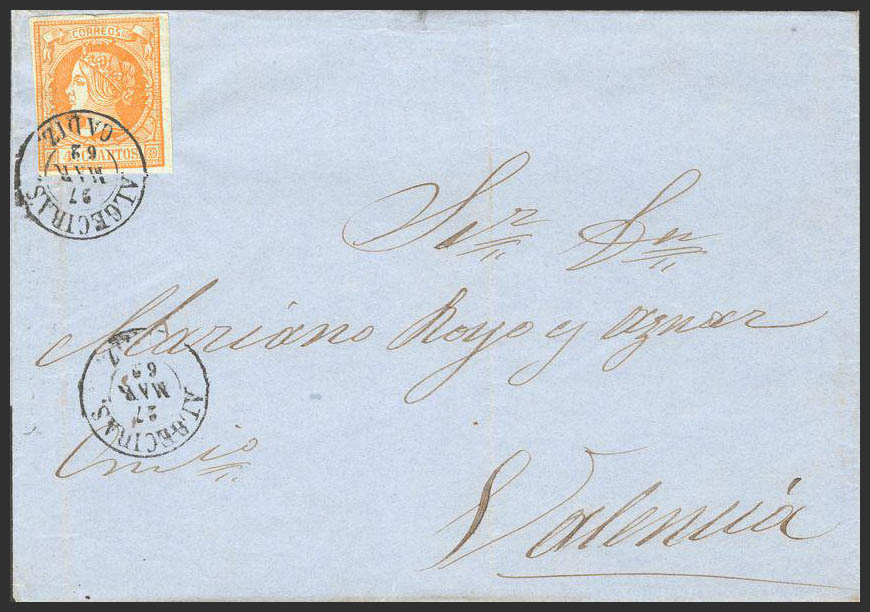 CORREOS
4 CUARTOS
ALGECIRAS.
27
MAR
62
CADIZ
Sr. Dn
Mariano Royo y Aznar
ALGECIRAS.
27
MAR
62
Valencia